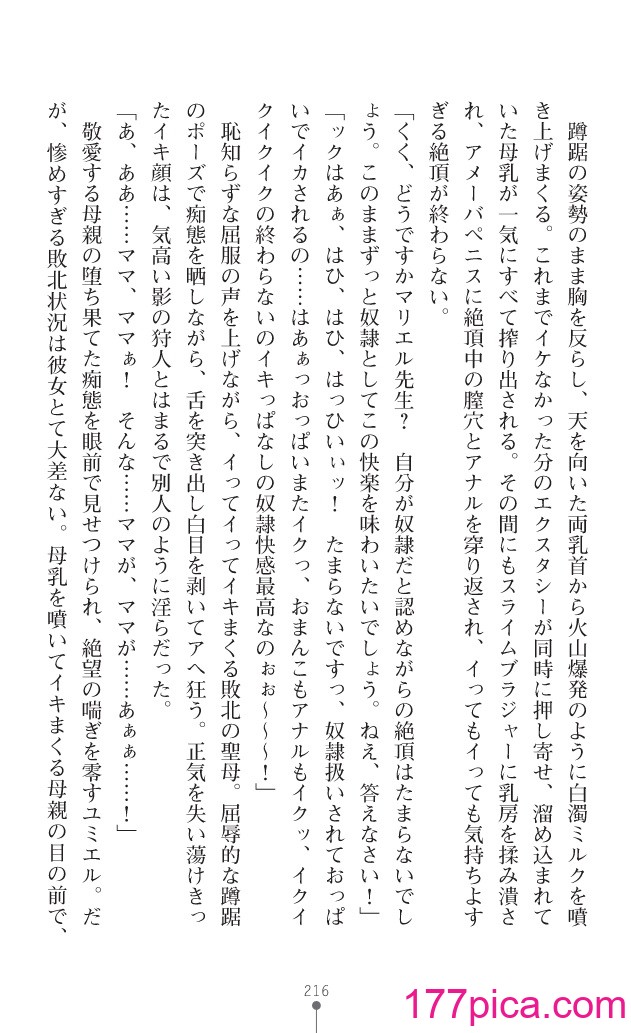 蹲踞の姿勢のまま胸を反らし、天を向いた両乳首から火山爆発のように白濁ミルクを噴
き上げまくる。これまでイケなかった分のエクスタシーが同時に押し寄せ、溜め込まれて
いた母乳が一気にすべて搾り出される。その間にもスライムブラジャーに乳房を揉み潰さ
れ、アメーバペニスに絶頂中の膣穴とアナルを穿り返され、イってもイっても気持ちよす
ぎる絶頂が終わらない。
「くく、どうですかマリエル先生？　自分が奴隷だと認めながらの絶頂はたまらないでし
ょう。このままずっと奴隷としてこの快楽を味わいたいでしょう。ねえ、答えなさい！」
「ックはあぁ、はひ、はひ、はっひいぃッ！　たまらないですっ、奴隷扱いされておっぱ
いでイカされるの……はあぁっおっぱいまたイクっ、おまんこもアナルもイクッ、イクイ
クイクイクの終わらないのイキっぱなしの奴隷快感最高なのぉぉ～～～！」
　恥知らずな屈服の声を上げながら、イってイってイキまくる敗北の聖母。屈辱的な蹲踞
のポーズで痴態を晒しながら、舌を突き出し白目を剥いてアヘ狂う。正気を失い蕩けきっ
たイキ顔は、気高い影の狩人とはまるで別人のように淫らだった。
「あ、ああ……ママ、ママぁ！　そんな……ママが、ママが……あぁぁ……！」
　敬愛する母親の堕ち果てた痴態を眼前で見せつけられ、絶望の喘ぎを零すユミエル。だ
が、惨めすぎる敗北状況は彼女とて大差ない。母乳を噴いてイキまくる母親の目の前で、
216
177pica.com